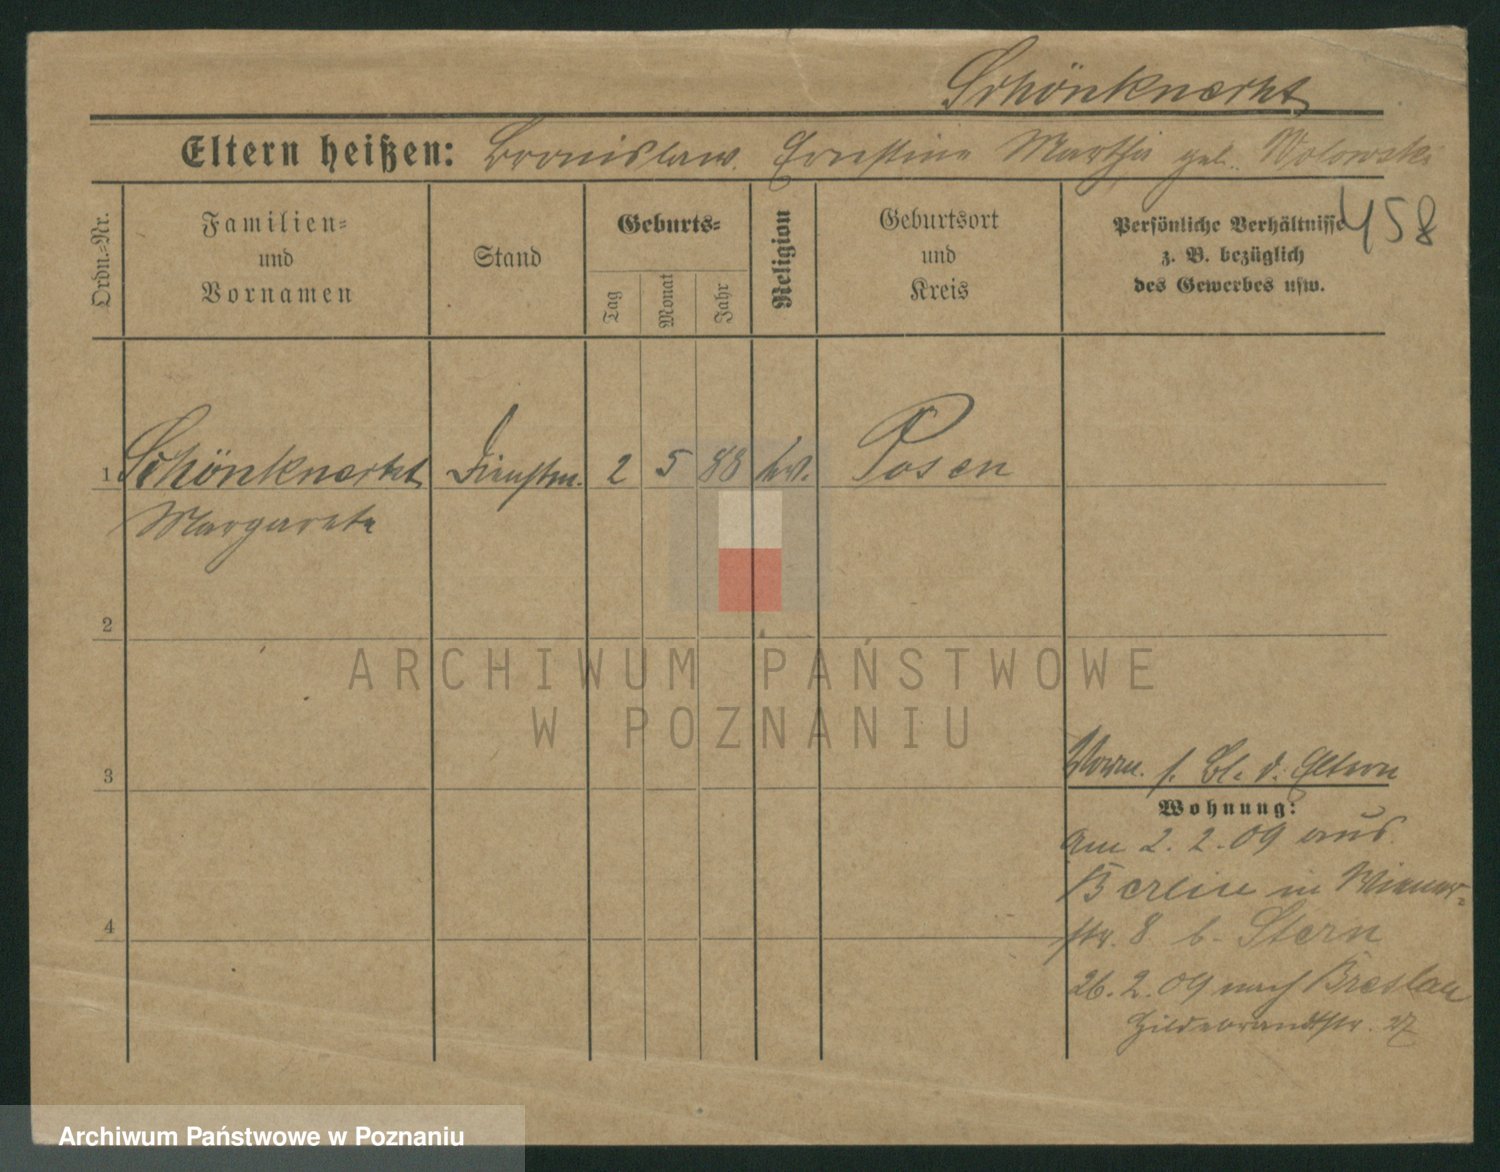 Schönknecht
Eltern heißen: Bronislaw. Ernstine Martha geb. Wolowski
458
Ordn.-Nr.
Familien-
und
Vornamen
Stand
Geburts-
Tag
Monat
Jahr
Religion
Geburtsort
und
Kreis
Persönliche Verhältnisse
z. B. bezüglich
des Gewerbes usw.
1 Schönknecht Dienstm. 2 5 88 Posen
Margarete
2
ARCHIWUM PAŃSTWOWE
W POZNANIU
3
Vorm. s. Bl. d. Eltern
Wohnung:
am 2.2.09 aus
Berlin in Wiener-
4
str. 8 b. Stern
26.2.09 nach Breslau
Hildebrandtstr. 27
Archiwum Państwowe w Poznaniu